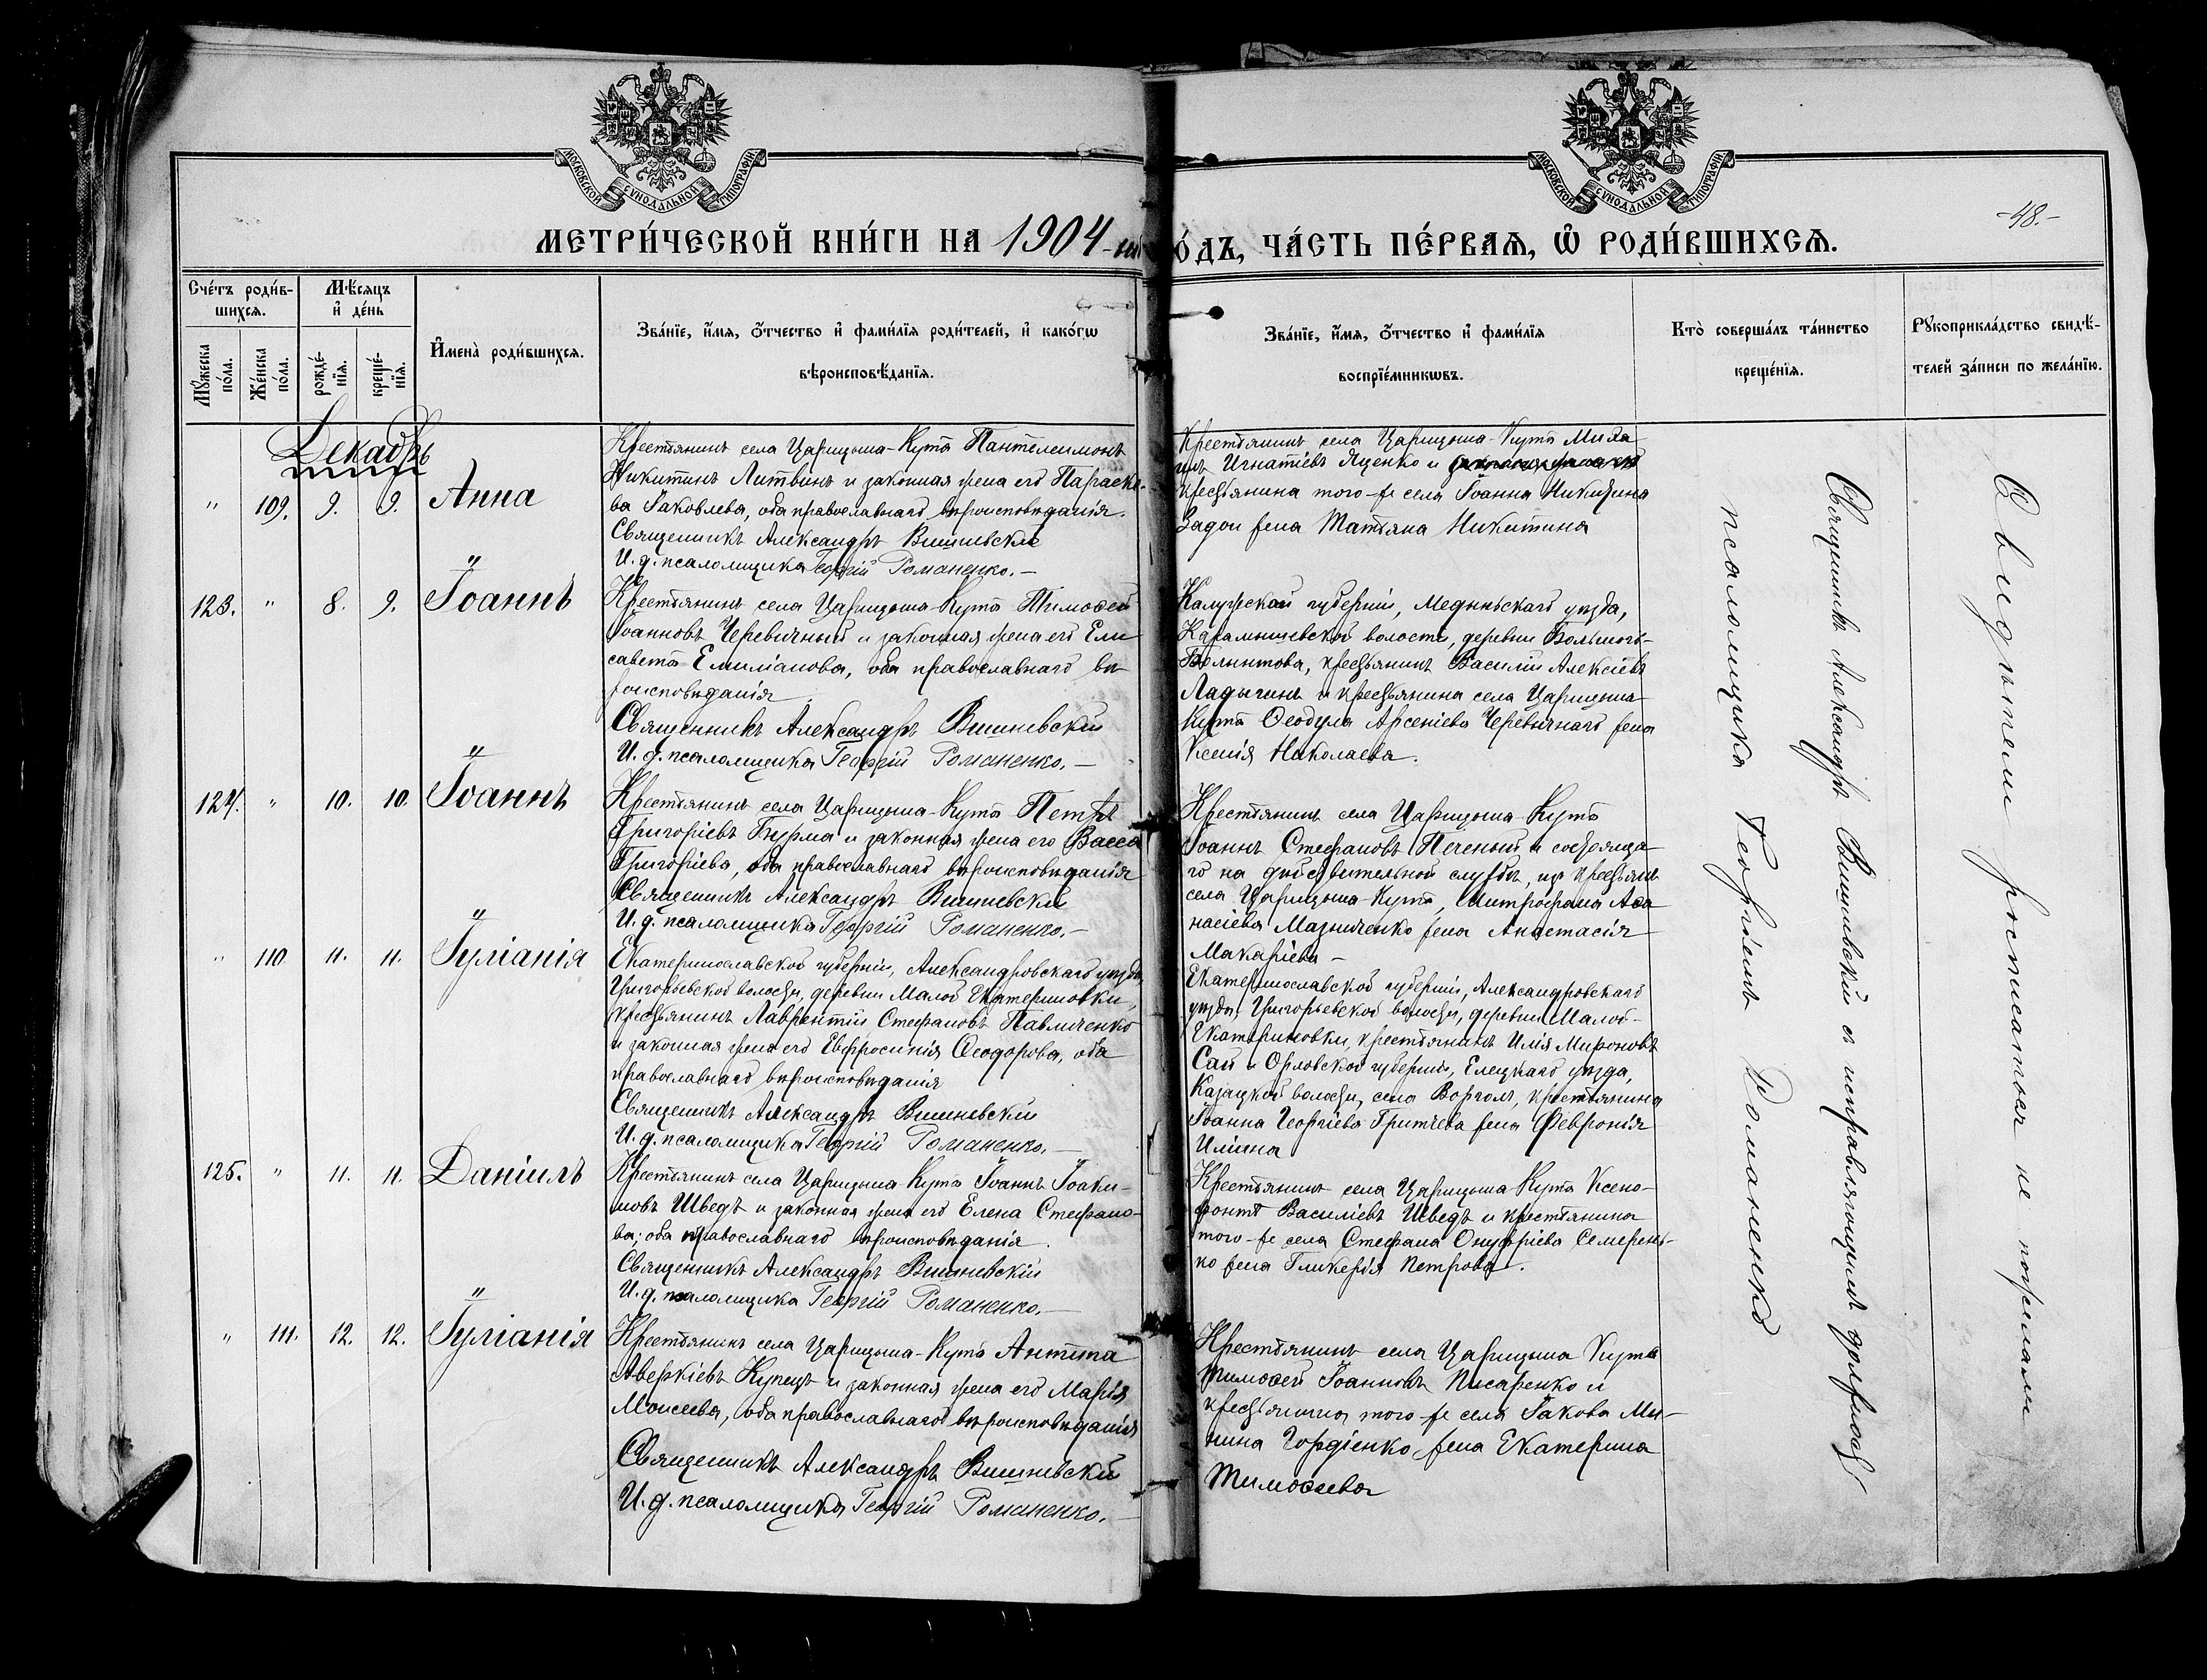 МОСКОВСКОЙ СѴНОДАЛЬНОЙ ТИПОГРАФІИ
МОСКОВСКОЙ СѴНОДАЛЬНОЙ ТИПОГРАФІИ
-48.-
МЕТРИ́ЧЕСКОЙ КНИ́ГИ НА 1904-
О́ДЪ, ЧА́СТЬ ПЕ́РВАѦ, Ѡ҆ РОДИ́ВШИХСѦ.
Сче́тъ роди́в-
шихсѧ.
Мꙋжеска по́ла.
Же́нска по́ла.
Мѣ́сѧцъ и҆ де́нь
рожде́-нїѧ.
креще́-нїѧ.
И҆мена̀ роди́вшихсѧ.
Зва́нїе, и҆́мѧ, ѻ҆́тчество и҆ фами́лїѧ роди́телей, и҆ како́гѡ
вѣроисповѣ́данїѧ.
Зва́нїе, и҆́мѧ, ѻ҆́тчество и҆ фами́лїѧ
воспрїе́мникѡвъ.
Кто̀ соверша́лъ та́инство
креще́нїѧ.
Рꙋкоприкла́дство свидѣ́-
телей за́писи по жела́нїю.
Декабрь
" 109. 9. 9. Анна
Крестьянинъ села Царицына-Кута Пантелеимонъ
Никитинъ Литвинъ и законная жена его Параске-
ва Іаковлева, оба православнаго вѣроисповѣданія.
Священникъ Александръ Вишневскій
И. д. псаломщика Георгій Романенко.—
Крестьянинъ села Царицына-Кута Миха
илъ Игнатіевъ Яценко и
крестьянина того-же села Іоанна Никитина
Задои жена Татьяна Никитина
"
123. " 8. 9. Іоаннъ
Крестьянинъ села Царицына-Кута Тимоѳей
Іоанновъ Черевичный и законная жена его Ели
савета Емиліанова, оба православнаго вѣ
роисповѣданія.
Священникъ Александръ Вишневскій
И. д. псаломщика Георгій Романенко.—
Калужской губерніи, Медынскаго уѣзда,
Карамышевской волости, деревни
крестьянинъ Василій Алексіевъ
Ладыгинъ и крестьянина села Царицына
Кута Ѳеодула Арсеніева Черевичнаго жена
Ксенія Николаева.
"
124. " 10. 10. Іоаннъ
Крестьянинъ села Царицына-Кута Петръ
Григоріевъ Бурма и законная жена его Васса
Григоріева, оба православнаго вѣроисповѣданія
Священникъ Александръ Вишневскій
И. д. псаломщика Георгій Романенко.—
Крестьянинъ села Царицына-Кута
Іоаннъ Стефановъ Печеный и состояща-
го на дѣйствительной службѣ, изъ крестьянъ
села Царицына-Кута, Митрофана Аѳа
насіева Мазниченко жена Анастасія
Макаріева —
"
" 110 11. 11. Іуліанія
Екатеринославской губерніи, Александровскаго уѣзда,
Григорьевской волости, деревни Малой Екатериновки,
крестьянинъ Лаврентій Стефановъ Павличенко
и законная жена его Евфросинія Ѳеодорова, оба
православнаго вѣроисповѣданія
Священникъ Александръ Вишневскій
И. д. псаломщика Георгій Романенко.—
Екатеринославской губерніи, Александровскаго
уѣзда, Григорьевской волости, деревни Малой-
Екатериновки, крестьянинъ Илія Мироновъ
Сай и Орловской губерніи, Елецкаго уѣзда,
Казацкой волости, села Ворголъ, крестьянина
Іоанна Георгіева Гритчева жена Февронія
Иліина
125. " 11. 11. Даніилъ
Крестьянинъ села Царицына-Кута Іоаннъ Іоаки-
мовъ Шведъ и законная жена его Елена Стефано-
ва; оба православнаго вѣроисповѣданія.
Священникъ Александръ Вишневскій
И. д. псаломщика Георгій Романенко.—
Крестьянинъ села Царицына-Кута Ксено-
фонтъ Василіевъ Шведъ и крестьянина
того-же села Стефана Онуфріева Семерень-
ко жена Гликерія Петрова.
"
" 111. 12. 12. Іуліанія
Крестьянинъ села Царицына-Кута Антипа
Аверкіевъ Купецъ и законная жена его Марія
Моисеева, оба православнаго вѣроисповѣданія
Священникъ Александръ Вишневскій
И. д. псаломщика Георгій Романенко.—
Крестьянинъ села Царицына Кута
Тимоѳей Іоанновъ Писаренко и
крестьянина того-же села Іакова Ми-
нина Гордіенко жена Екатерина
Тимоѳеева
Священникъ Александръ Вишневскій съ исправляющимъ должность
псаломщика Георгіемъ Романенко
Свидѣтели росписаться не пожелали